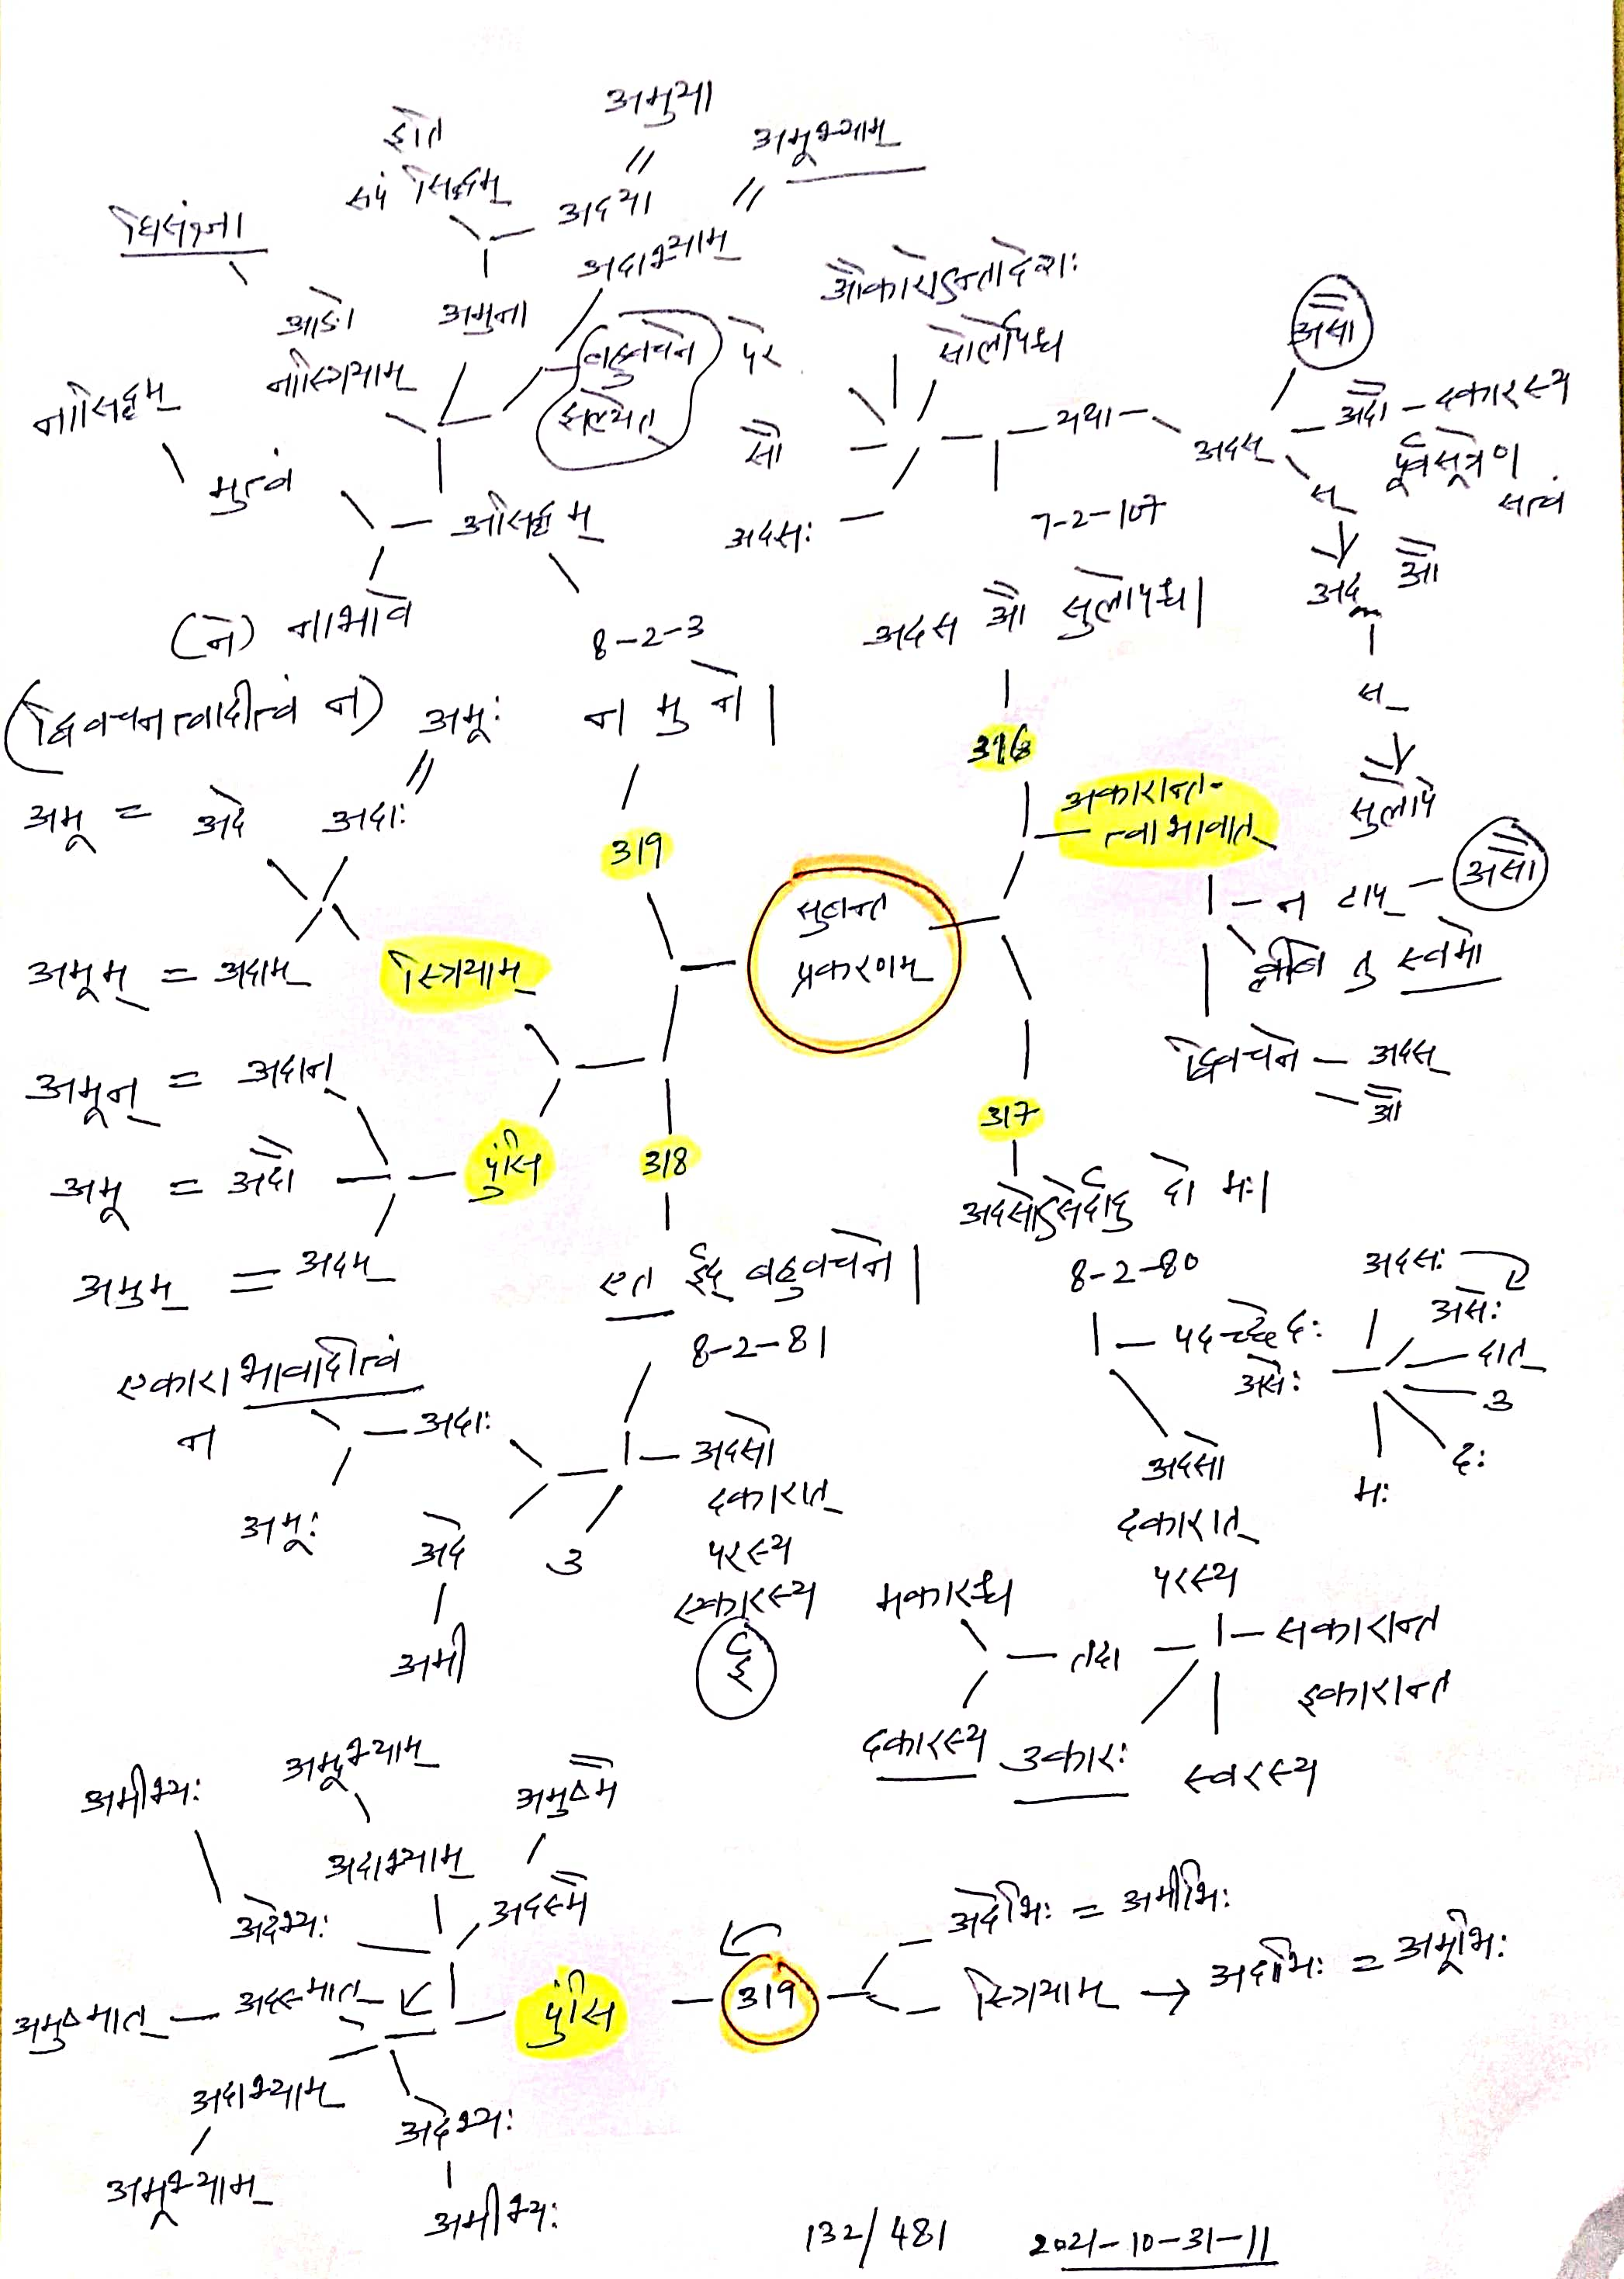 अमुया
इति
॥
अमूभ्याम्
सर्वं सिद्धम्
अदया
॥
घिसंज्ञा
अदाभ्याम्
औकारोऽन्तादेशः
आङो
अमुना
सोर्लोपश्च
असौ
नास्त्रियाम्
बहुवचने
परे
झल्येत्
नासिद्धम्
सौ
यथा
अदस्
अदौ - दकारस्य
पूर्वसूत्रेण
सत्वं
मुत्वं
असिद्धम्
अदसः
7-2-107
स्
अद औ
(ने) नाभावे
8-2-3
अदस औ सुलोपश्च।
(द्विवचनत्वादीत्वं न)
अमूः
न मु ने।
स्
॥
316
सुलोपे
अमू = अदे
अदाः
अकारान्त-
त्वाभावात्
319
सुबन्त
प्रकरणम्
न टाप्
असौ
अमूम् = अदाम्
स्त्रियाम्
क्लीबे तु स्वमो
अमून् = अदान्
द्विवचने - अदस्
औ
317
अमू = अदौ
पुंसि
318
अदसोऽसेर्दादु दो मः।
अमुम् = अदम्
एत ईद् बहुवचने।
8-2-80
अदसः
8-2-81
पदच्छेदः
असेः
एकाराभावादीत्वं
न
असेः
दात्
अदाः
उ
अदसो
दकारात्
परस्य
एकारस्य
ई
अदसो
दकारात्
परस्य
मः
दः
अमूः
अदे
उ
अमी
मकारश्च
तदा
सकारान्त
इकारान्त
दकारस्य
उकारः
स्वरस्य
अमीभ्यः
अमूभ्याम्
अमुष्मै
अदाभ्याम्
अदेभ्यः
अदस्मै
अदेभिः = अमीभिः
अमुष्मात्
अदस्मात्
पुंसि
319
स्त्रियाम् → अदाभिः = अमूभिः
अदाभ्याम्
अदेभ्यः
अमूभ्याम्
अमीभ्यः
132/481
2021-10-31-11